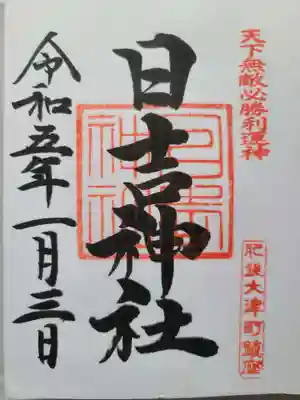 天下無敵必勝利運神
日吉神社
肥後大津町鎮座
令和五年一月三日